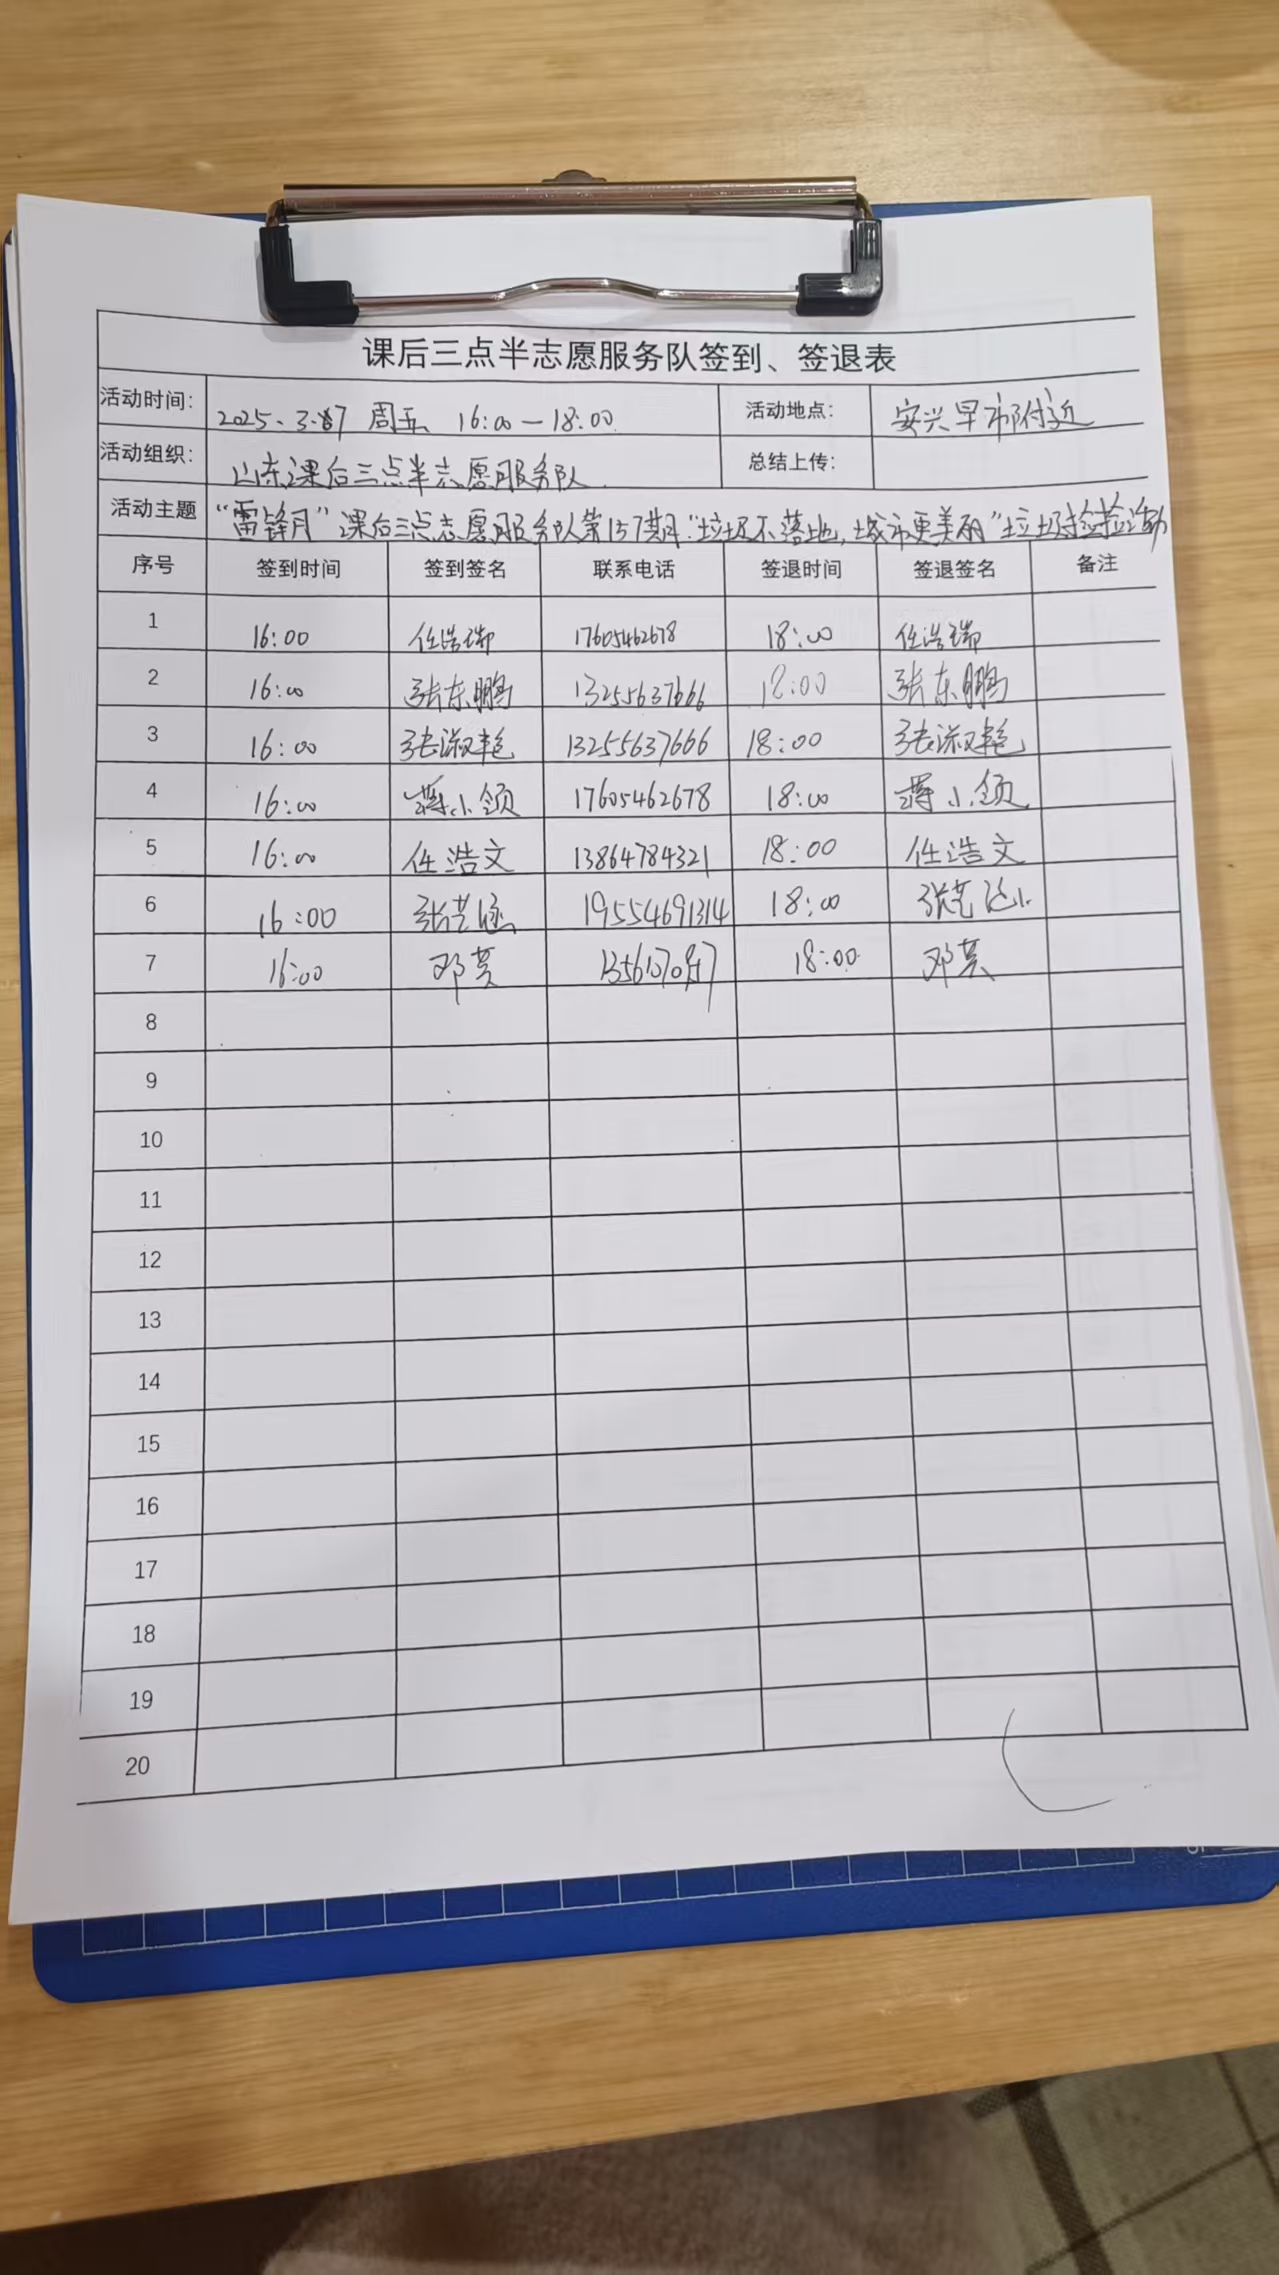 课后三点半志愿服务队签到、签退表
活动时间： 2025.3.7 周五 16:00—18:00 活动地点： 安兴早市附近
活动组织： 山东课后三点半志愿服务队 总结上传：
活动主题 “雷锋月”课后三点志愿服务队第157期“垃圾不落地，城市更美丽”垃圾捡捡活动
序号 签到时间 签到签名 联系电话 签退时间 签退签名 备注
1 16:00 任浩瑞 17605462678 18:00 任浩瑞
2 16:00 张东鹏 13255637666 18:00 张东鹏
3 16:00 张淑艳 13255637666 18:00 张淑艳
4 16:00 蒋小领 17605462678 18:00 蒋小领
5 16:00 任浩文 13864784321 18:00 任浩文
6 16:00 张艺涵 19554691314 18:00 张艺涵
7 16:00 邓 18:00 邓
8
9
10
11
12
13
14
15
16
17
18
19
20